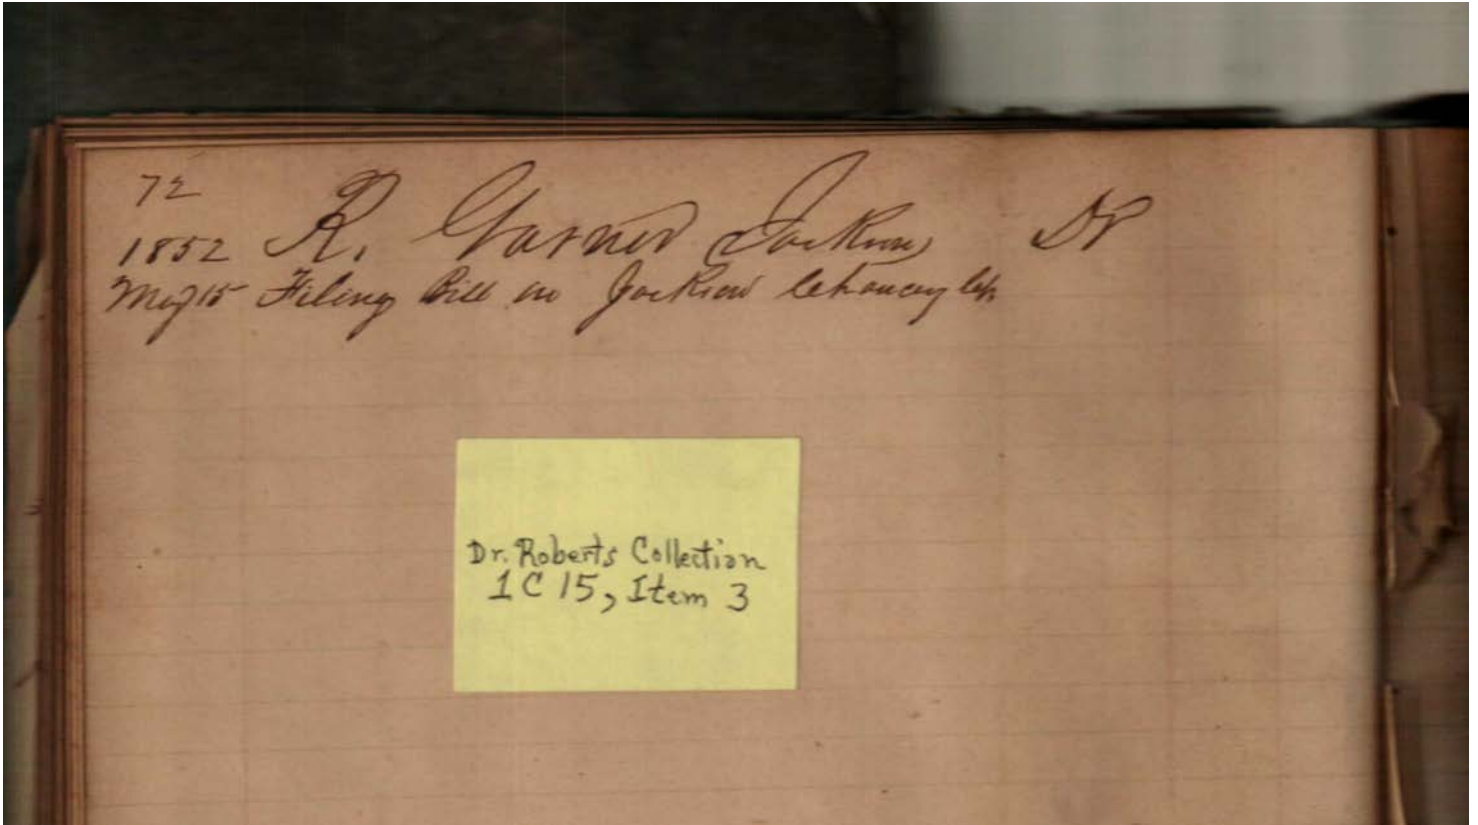 72
1852 R. Garner (Jackson) Dr
May 15 Filing Bill in Jackson Chancery Ct
Dr. Roberts Collection
1C15, Item 3